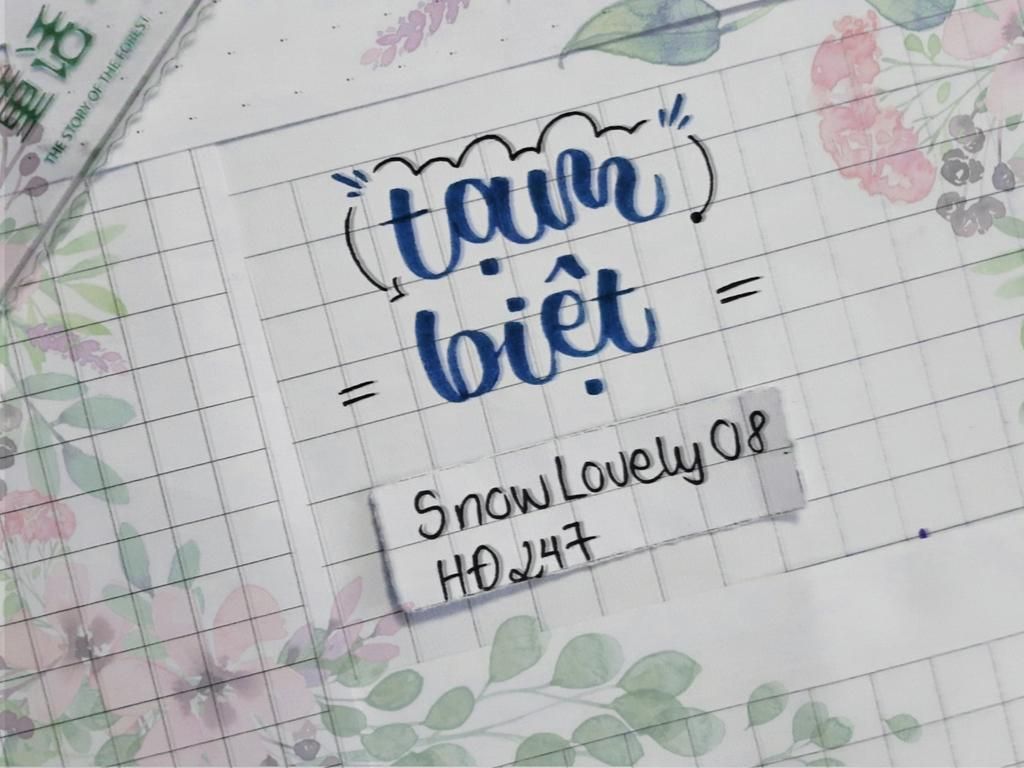 語
THE STORY OF THE FOREST
tạm
biệt
SnowLovely08
HĐ247